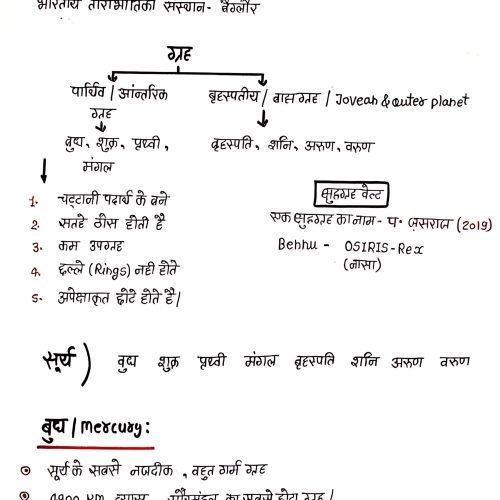 भारतीय ताराभौतिकी संस्थान - बैंग्लौर
ग्रह
पार्थिव / आंन्तरिक ग्रह
बृहस्पतीय / बाह्य ग्रह / Jovean & outer planet
बुध, शुक्र, पृथ्वी, मंगल
बृहस्पति, शनि, अरुण, वरुण
1. चट्टानी पदार्थ के बने
2. सतहे ठोस होती है
3. कम उपग्रह
4. छल्ले (Rings) नही होते
5. अपेक्षाकृत छोटे होते है /
क्षुद्रग्रह वेल्ट
एक क्षुद्रग्रह का नाम - पं. जसराज (2019)
Behhu - OSIRIS-Rex
(नासा)
सूर्य ) बुध शुक्र पृथ्वी मंगल बृहस्पति शनि अरुण वरुण
बुध / Mercury :
सूर्य के सबसे नजदीक, बहुत गर्म ग्रह
4900 KM व्यास, सौरमंडल का सबसे छोटा ग्रह /